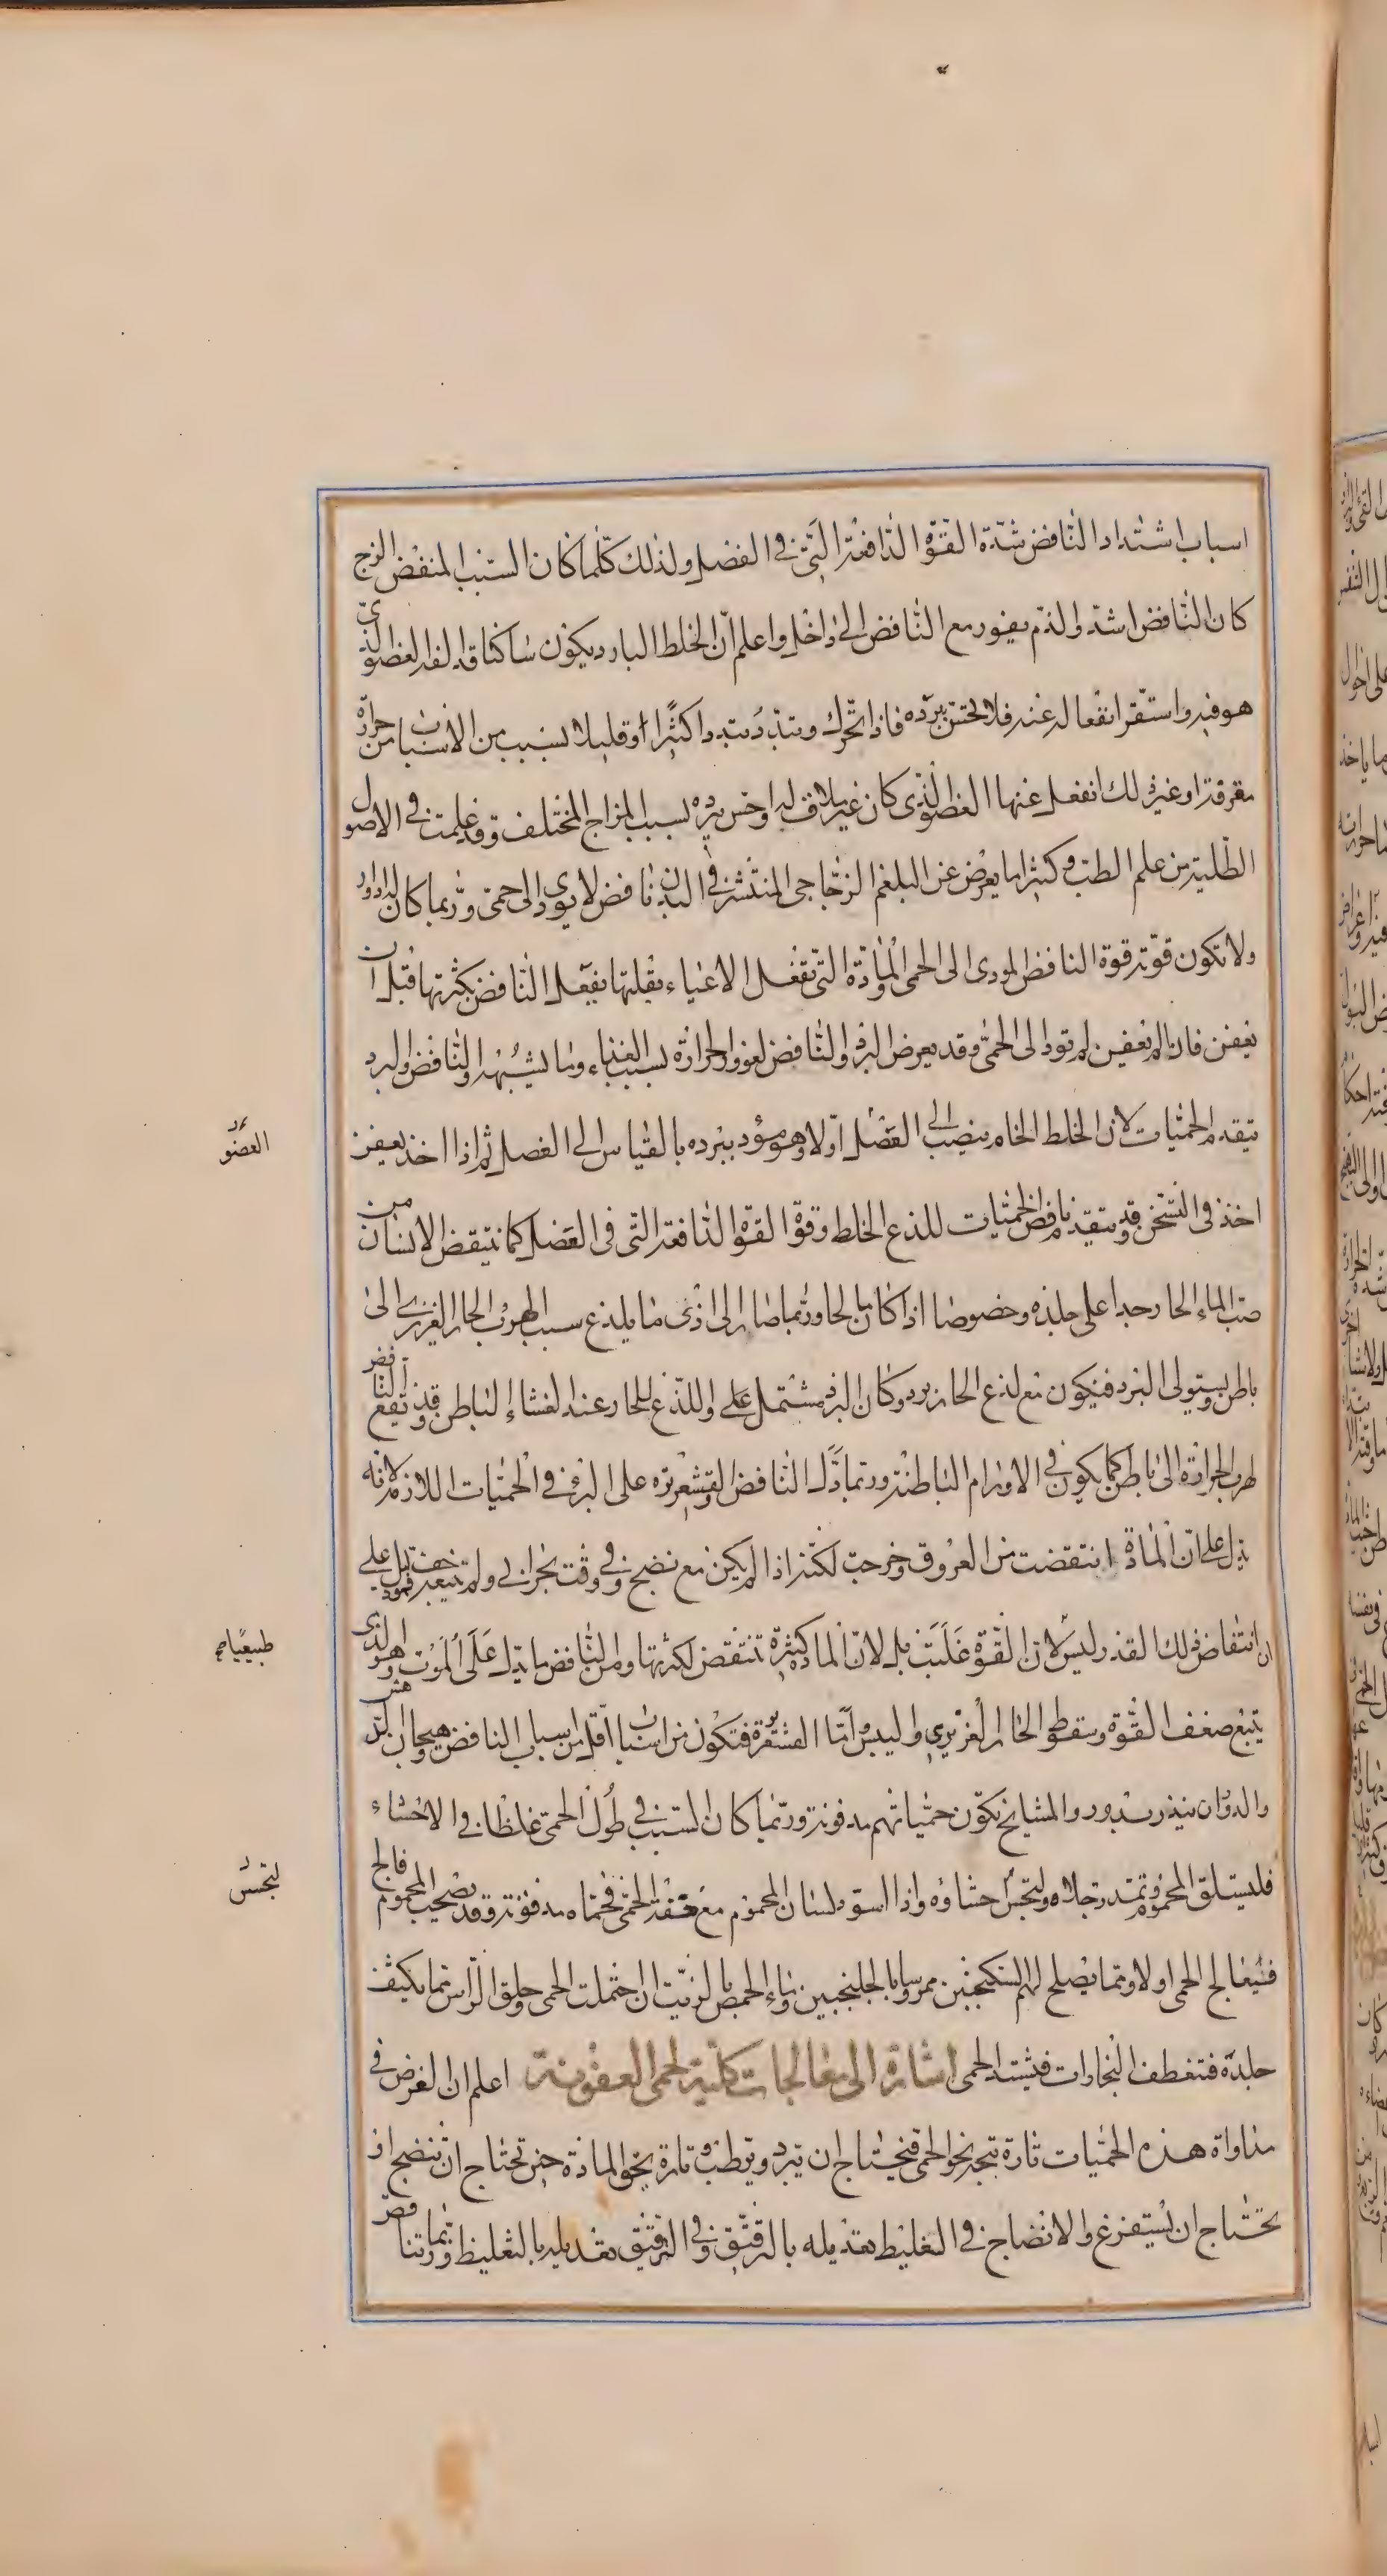 اسباب اشتداد النافض شدة القوة الدافعة التى فى الفضل ولذلك كلما كان السبب المنفض الزج
كان النافض اشد والدم يغور مع النافض الى داخل واعلم ان الخلط البارد يكون ساكنا قد الفه العضو الذى
هو فيه واستقر انفعاله عنه فلا يحس ببرده فاذا تحرك وتبدد تبددا كثيرا او قليلا لسبب من الاسباب من حرارة
مفرقة او غير ذلك انفعل عنها العضو الذى كان غير ملاق له واحس ببرده لسبب المزاج المختلف وقد علمت فى الاصول
الطلية من علم الطب وكثيرا ما يعرض عن البلغم الزجاجى المنتشر فى البدن نافض لا يودى الى حمى وربما كان له ادوار
ولا تكون قوته قوة النافض المودى الى الحمى والمادة التى تفعل الاعياء بقلتها تفعل النافض بكثرتها قبل ان
تعفن فان لم تعفن لم تود الى الحمى وقد يعرض البرد والنافض لغوور الحرارة بسبب الغذاء وما يشبهه والنافض والبرد
يتقدم الحميات لان الخلط الخام ينصب الى العضل اولا وهو مؤد ببرده بالقياس الى الفصل ثم اذا اخذ يعفن
اخذ فى التسخن وقد يتقدم نافض الحميات للذع الخلط وقوة القوة الدافعة التى فى العضل كما ينتقض الانسان من
صب الماء الحار جدا على جلده وخصوصا اذا كان مالحا وربما صار الى اذى ما يلذع سببا لهرب الحار الغريزى الى
باطن ويستولى البرد فيكون مع لذع الحار برد وكان البرد مشتمل على واللذع للحار عند الغشاء الباطن وقد يقع النافض
لهرب الحرارة الى باطن كما يكون فى الاورام الباطنة وربما دل النافض والقشعريرة على البرء فى الحميات اللازمة لانه
يدل على ان المادة انتقضت من العروق وخرجت لكنه اذا لم يكن مع نضج وفى وقت بحرانى ولم تتبعه خفة فهو دليل على
ان انتفاض ذلك القدر ليس لان القوة غلبت بل لان المادة كثيرة تنتفض لكثرتها ومن النافض ما يدل على الموت وهو الذى
يتبع ضعف القوة وسقوط الحار الغريزى واليبس واما القشعريرة فتكون من اسباب اقل من اسباب النافض وهيجان البرد
والدوران ينذر بدور والمشايخ تكون حمياتهم مدفونة وربما كان السبب فى طول الحمى غلظا فى الاحشاء
فليستلق المحموم وتمد رجلاه وليجس احشاؤه واذا اسود لسان المحموم مع خفة الحمى فحماه مدفونة وقد يصحب المحموم فالج
فيعالج الحمى اولا ومما يصلح لهم السكنجبين ممروسا بالجلنجبين وماء الحمص بالزيت ان احتملت الحمى وحلق الراس مما يكثف
جلدة فتنعطف البخارات فتشتد الحمى اشارة الى معالجات كلية لحمى العفونة اعلم ان الغرض فى
مداواة هذه الحميات تارة يتجه نحو الحمى فيحتاج ان تبرد وترطب وتارة نحو المادة حين تحتاج ان تنضج او
تحتاج ان تستفرغ والانضاج فى الغليظ تعديله بالترقيق وفى الرقيق تعديله بالتغليظ وربما تناقض
العضو
طبيعيا صح
ليجس